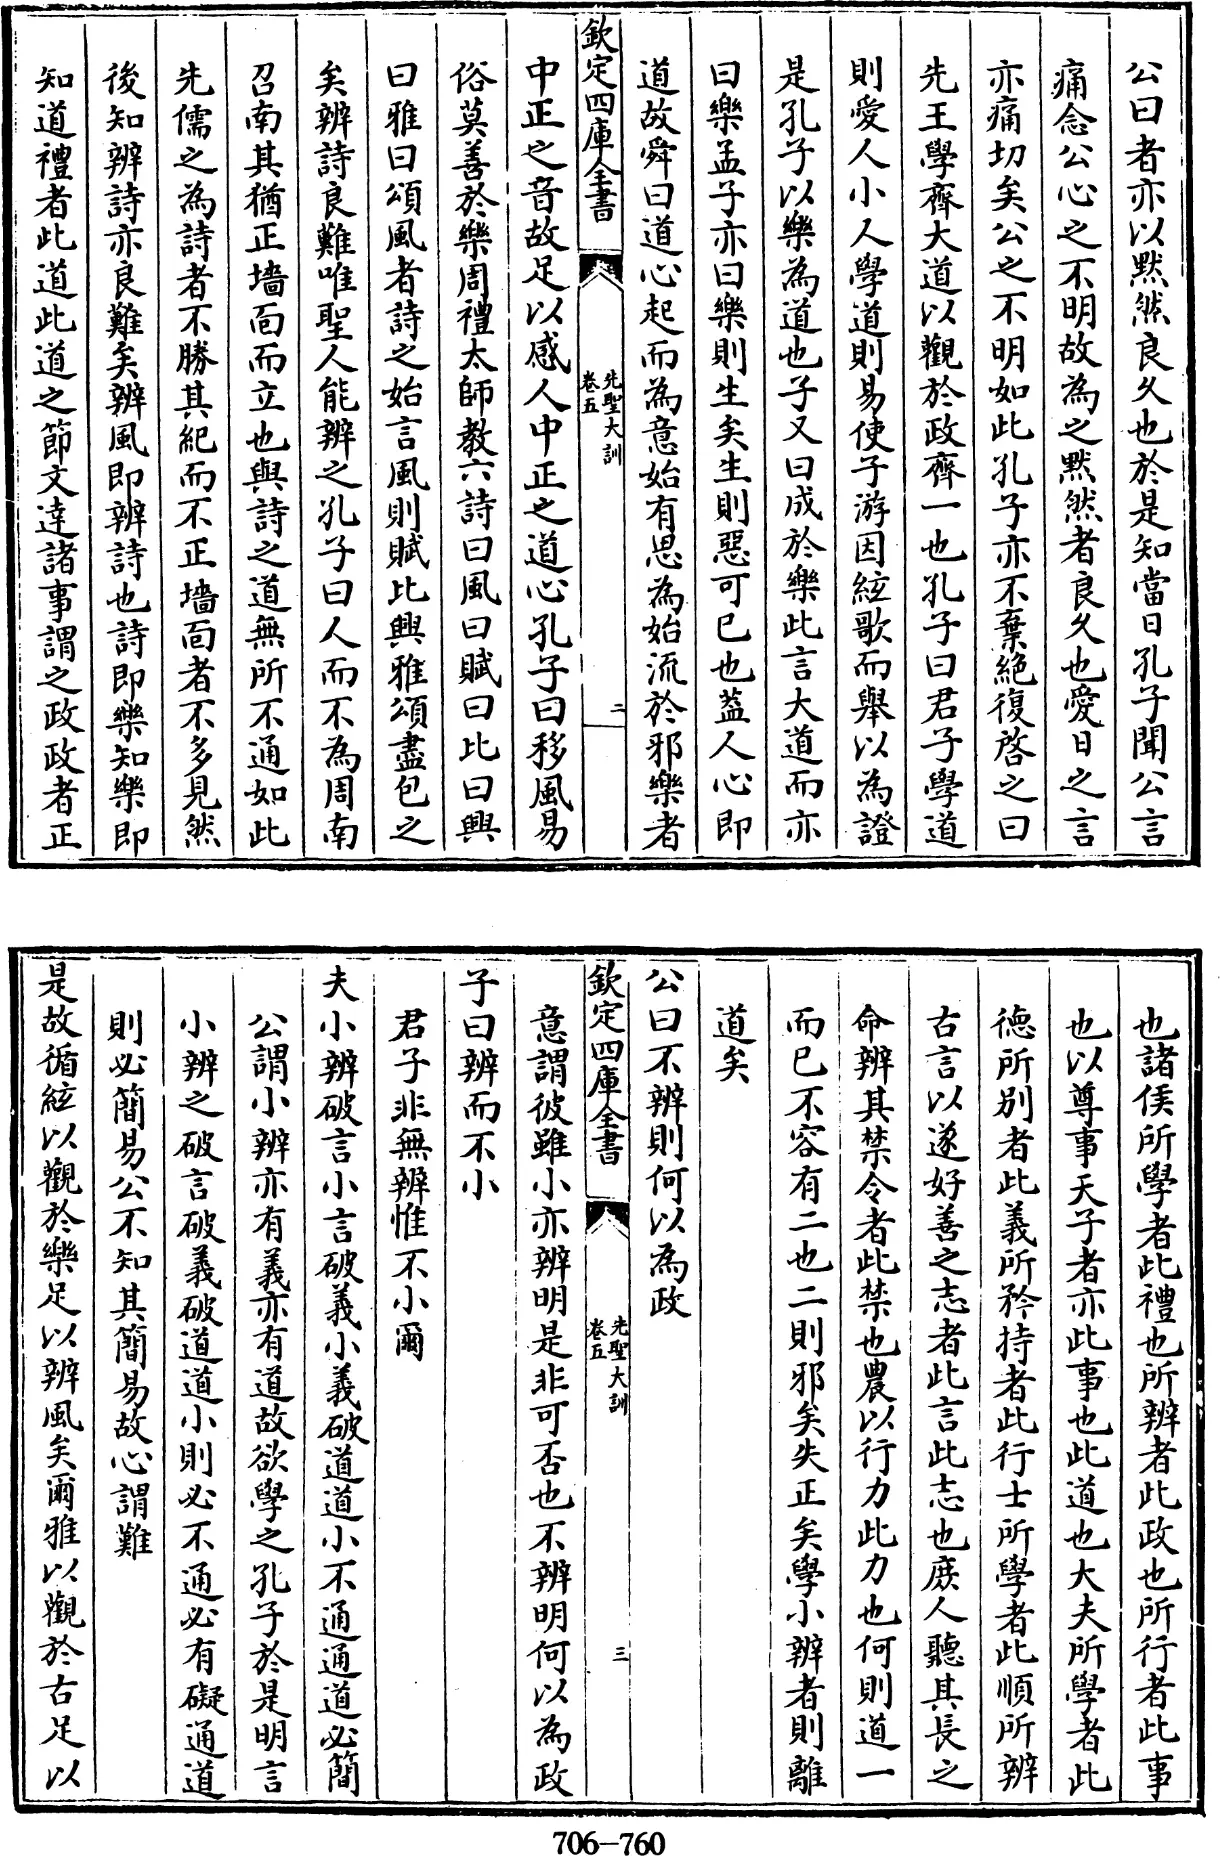 公曰者亦以黙然良久也於是知當日孔子聞公言
痛念公心之不明故為之黙然者良久也愛日之言
亦痛切矣公之不明如此孔子亦不棄絶復啓之曰
先王學齊大道以觀於政齊一也孔子曰君子學道
則愛人小人學道則易使子游因絃歌而舉以為證
是孔子以樂為道也子又曰成於樂此言大道而亦
曰樂孟子亦曰樂則生矣生則惡可已也葢人心即
道故舜曰道心起而為意始有思為始流於邪樂者
欽定四庫全書
先聖大訓
卷五
二
中正之音故足以感人中正之道心孔子曰移風易
俗莫善於樂周禮太師教六詩曰風曰賦曰比曰興
曰雅曰頌風者詩之始言風則賦比興雅頌盡包之
矣辨詩良難唯聖人能辨之孔子曰人而不為周南
召南其猶正墻面而立也與詩之道無所不通如此
先儒之為詩者不勝其紀而不正墻面者不多見然
後知辨詩亦良難矣辨風即辨詩也詩即樂知樂即
知道禮者此道此道之節文逹諸事謂之政政者正
也諸侯所學者此禮也所辨者此政也所行者此事
也以尊事天子者亦此事也此道也大夫所學者此
徳所別者此義所矜持者此行士所學者此順所辨
古言以遂好善之志者此言此志也庶人聽其長之
命辨其禁令者此禁也農以行力此力也何則道一
而已不容有二也二則邪矣失正矣學小辨者則離
道矣
公曰不辨則何以為政
欽定四庫全書
先聖大訓
卷五
三
意謂彼雖小亦辨明是非可否也不辨明何以為政
子曰辨而不小
君子非無辨惟不小爾
夫小辨破言小言破義小義破道道小不通通道必簡
公謂小辨亦有義亦有道故欲學之孔子於是明言
小辨之破言破義破道道小則必不通必有礙通道
則必簡易公不知其簡易故心謂難
是故循絃以觀於樂足以辨風矣爾雅以觀於古足以
706-760